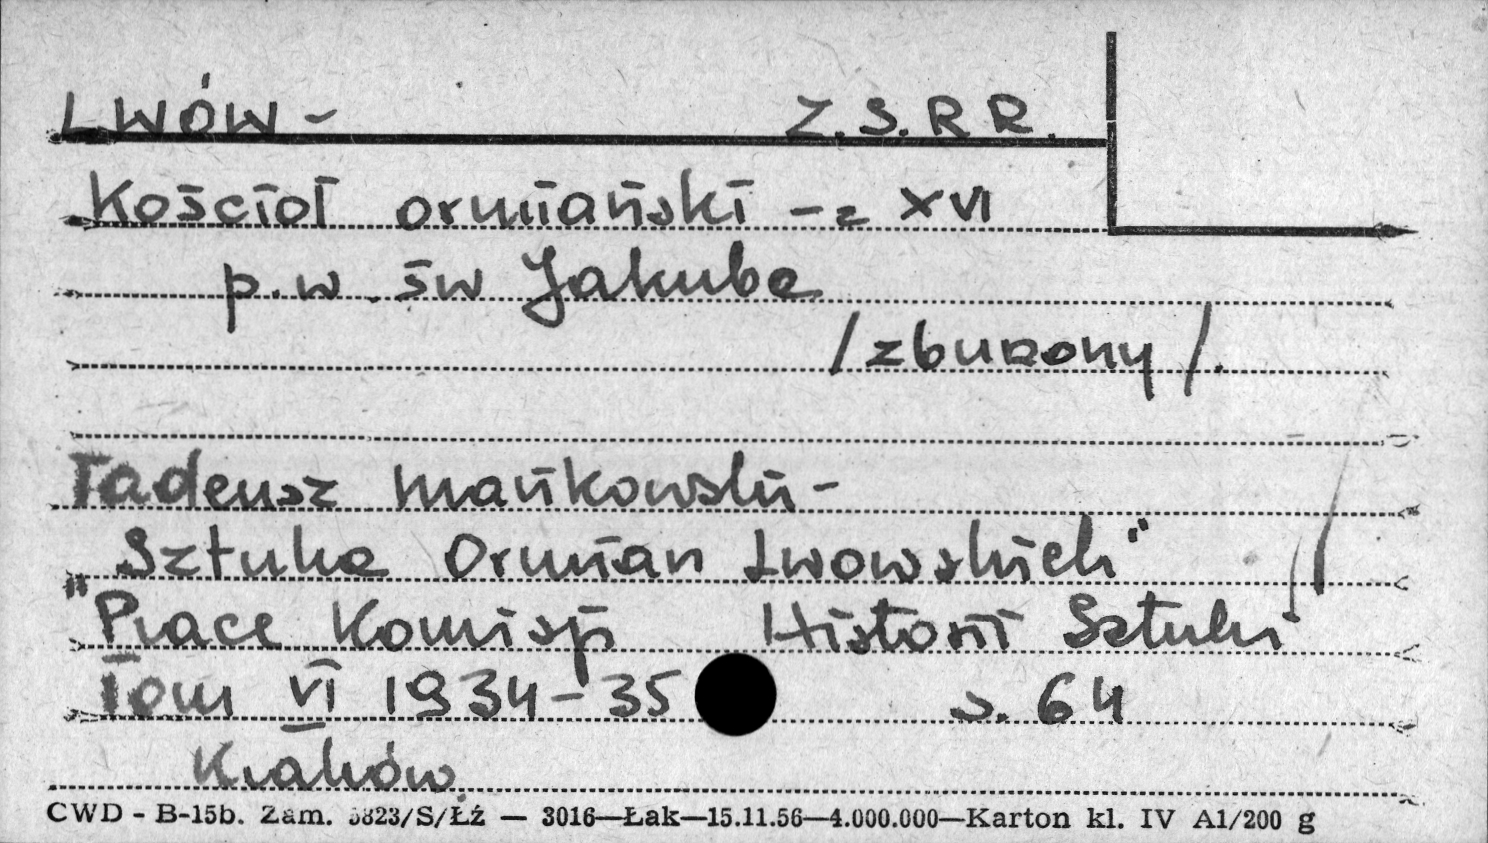 LWÓW - Z.S.R.R.
Kościoł ormiański - z XVI
p.w. św Jakuba
/zburzony/.
Tadeusz Mańkowski -
Sztuka Ormian Lwowskich"
"Prace Komisji Historii Sztuki
Tom VI 1934-35 s. 64
Kraków.
CWD - B-15b. Zam. 5823/S/Łź — 3016—Łak—15.11.56—4.000.000—Karton kl. IV A1/200 g